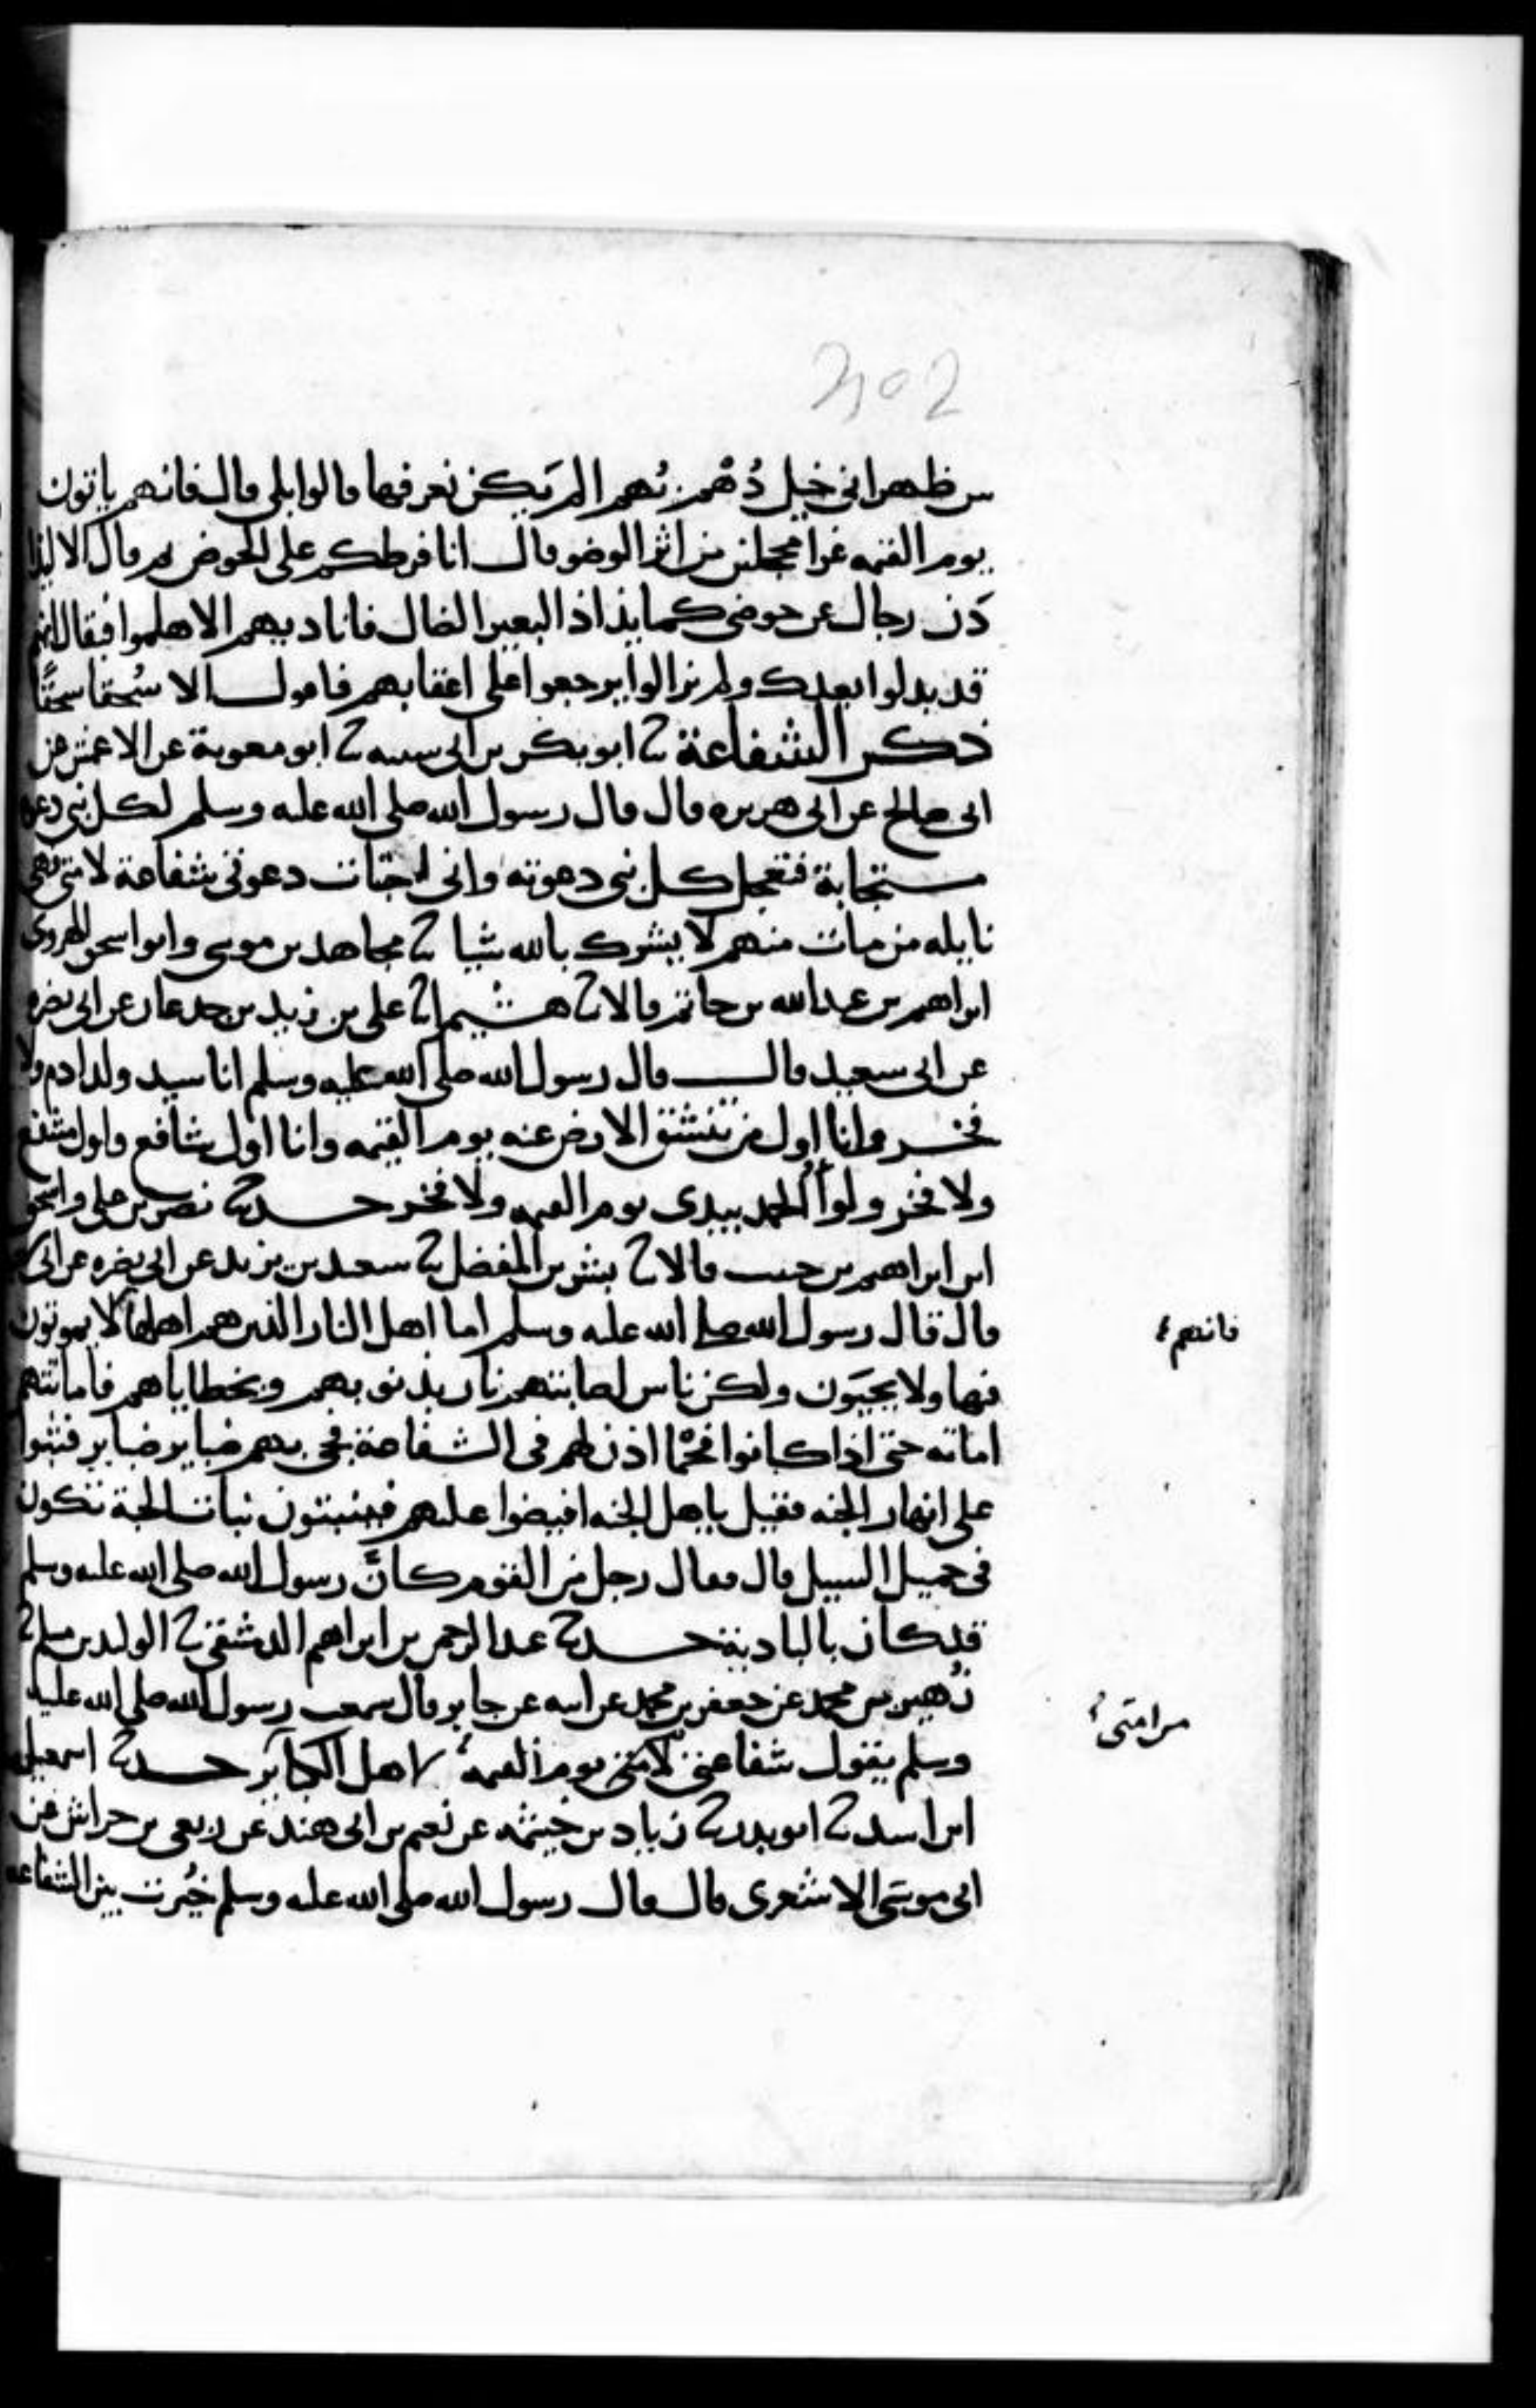 302
بين ظهراني خيل دُهْم بُهم الم يَكن يعرفها قالوا بلى قال فانهم ياتون
يوم القيمه غرا محجلين من اثر الوضو قال انا فرطكم على الحوض ثم قال الا ليذا
دَن رجال عن حوضي كما يذاد البعير الضال فاناديهم الا هلموا فيقال انهم
قد بدلوا بعدك ولم يزالوا يرجعوا على اعقابهم فاقول الا سُحقا سحقًا
ذكر الشفاعة ثنا ابو بكر بن ابي شيبه ثنا ابو معوية عن الاعمش عن
ابي صالح عن ابي هريره قال قال رسول الله صلى الله عليه وسلم لكل نبي دعوة
مستجابة فتعجل كل نبي دعوته واني اختبات دعوتي شفاعة لامتي فهي
نايله من مات منهم لا يشرك بالله شيا ثنا مجاهد بن موسى وابو اسحق الهروي
ابراهيم بن عبد الله بن حاتم قالا ثنا هشيم انا علي بن زيد بن جدعان عن ابي نضره
عن ابي سعيد قال قال رسول الله صلى الله عليه وسلم انا سيد ولد ادم ولا
فخر وانا اول من تنشق الارض عنه يوم القيمه وانا اول شافع واول مشفع
ولا فخر ولوأ الحمد بيدي يوم القيمه ولا فخر حدثنا نصر بن علي واسحق
ابن ابراهيم بن حبيب قالا ثنا بشر بن المفضل ثنا سعيد بن يزيد عن ابي نضره عن ابي
قال قال رسول الله صلى الله عليه وسلم اما اهل النار الذين هم اهلها لا يموتون
فانهم
فيها ولا يحيَون ولكن ناس اصابتهم نار بذنوبهم وبخطاياهم فاماتتهم
اماته حتى اذا كانوا فحْما اذن لهم في الشفاعة فجي بهم ضباير ضباير فبثوا
على انهار الجنه فقيل ياهل الجنه افيضوا عليهم فينبتون نبات الحبة تكون
في حميل السيل قال فقال رجل من القوم كانَّ رسول الله صلى الله عليه وسلم
قد كان بالبادية حدثنا عبد الرحمن بن ابراهيم الدمشقي ثنا الوليد بن مسلم ثنا
زُهير بن محمد عن جعفر بن محمد عن ابيه عن جابر قال سمعت رسول الله صلى الله عليه
وسلم يقول شفاعتي لامتي يوم القيمه لاهل الكباير حدثنا اسمعيل
من امتي
ابن اسد ثنا ابو بدر ثنا زياد بن خيثمه عن نعيم بن ابي هند عن ربعي بن حراش عن
ابي موسَى الاشعري قال قال رسول الله صلى الله عليه وسلم خُيّرت بين الشفاعه